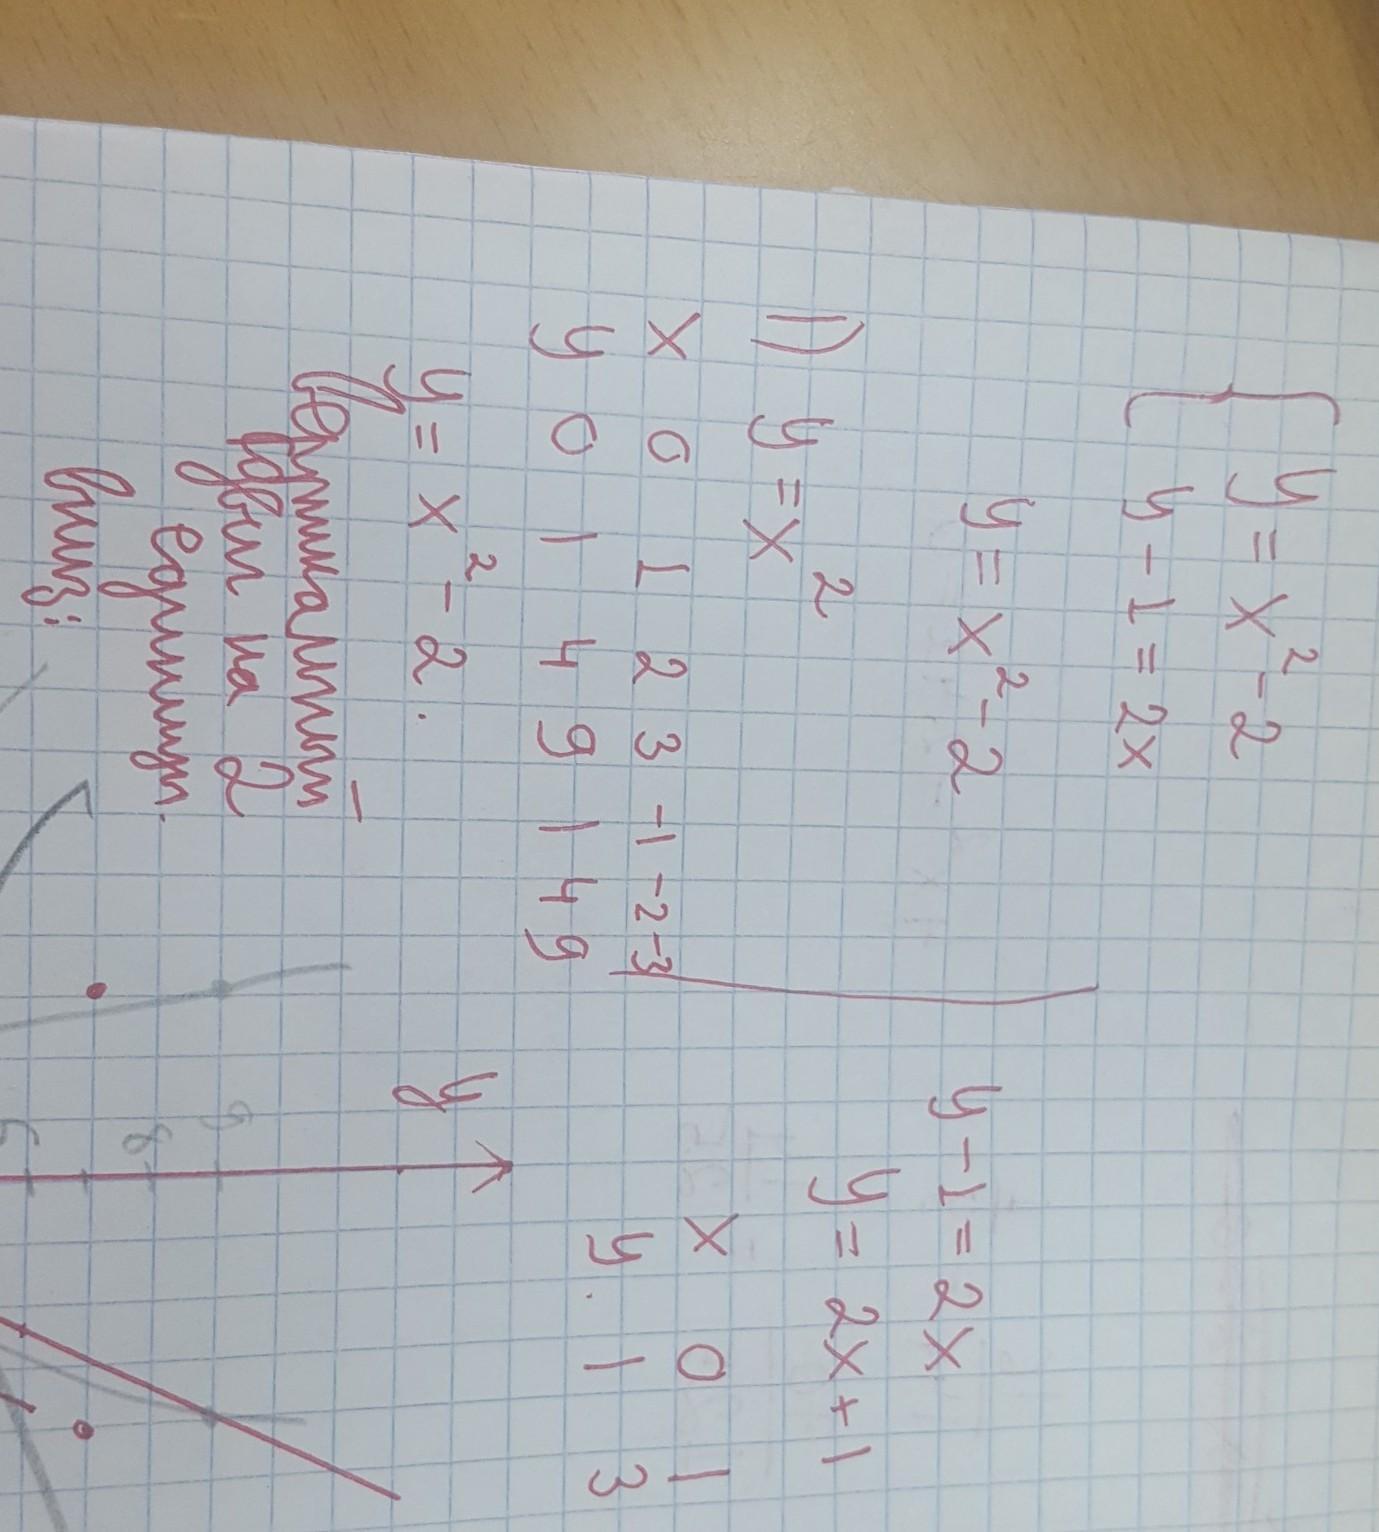 y = x² - 2
y - 1 = 2x
y = x² - 2
1) y = x²
x 0 1 2 3 -1 -2 -3
y 0 1 4 9 1 4 9
y = x² - 2.
вертикальный
сдвиг на 2
единицы
вниз:
y - 1 = 2x
y = 2x + 1
x 0 1
y. 1 3
y
9
8